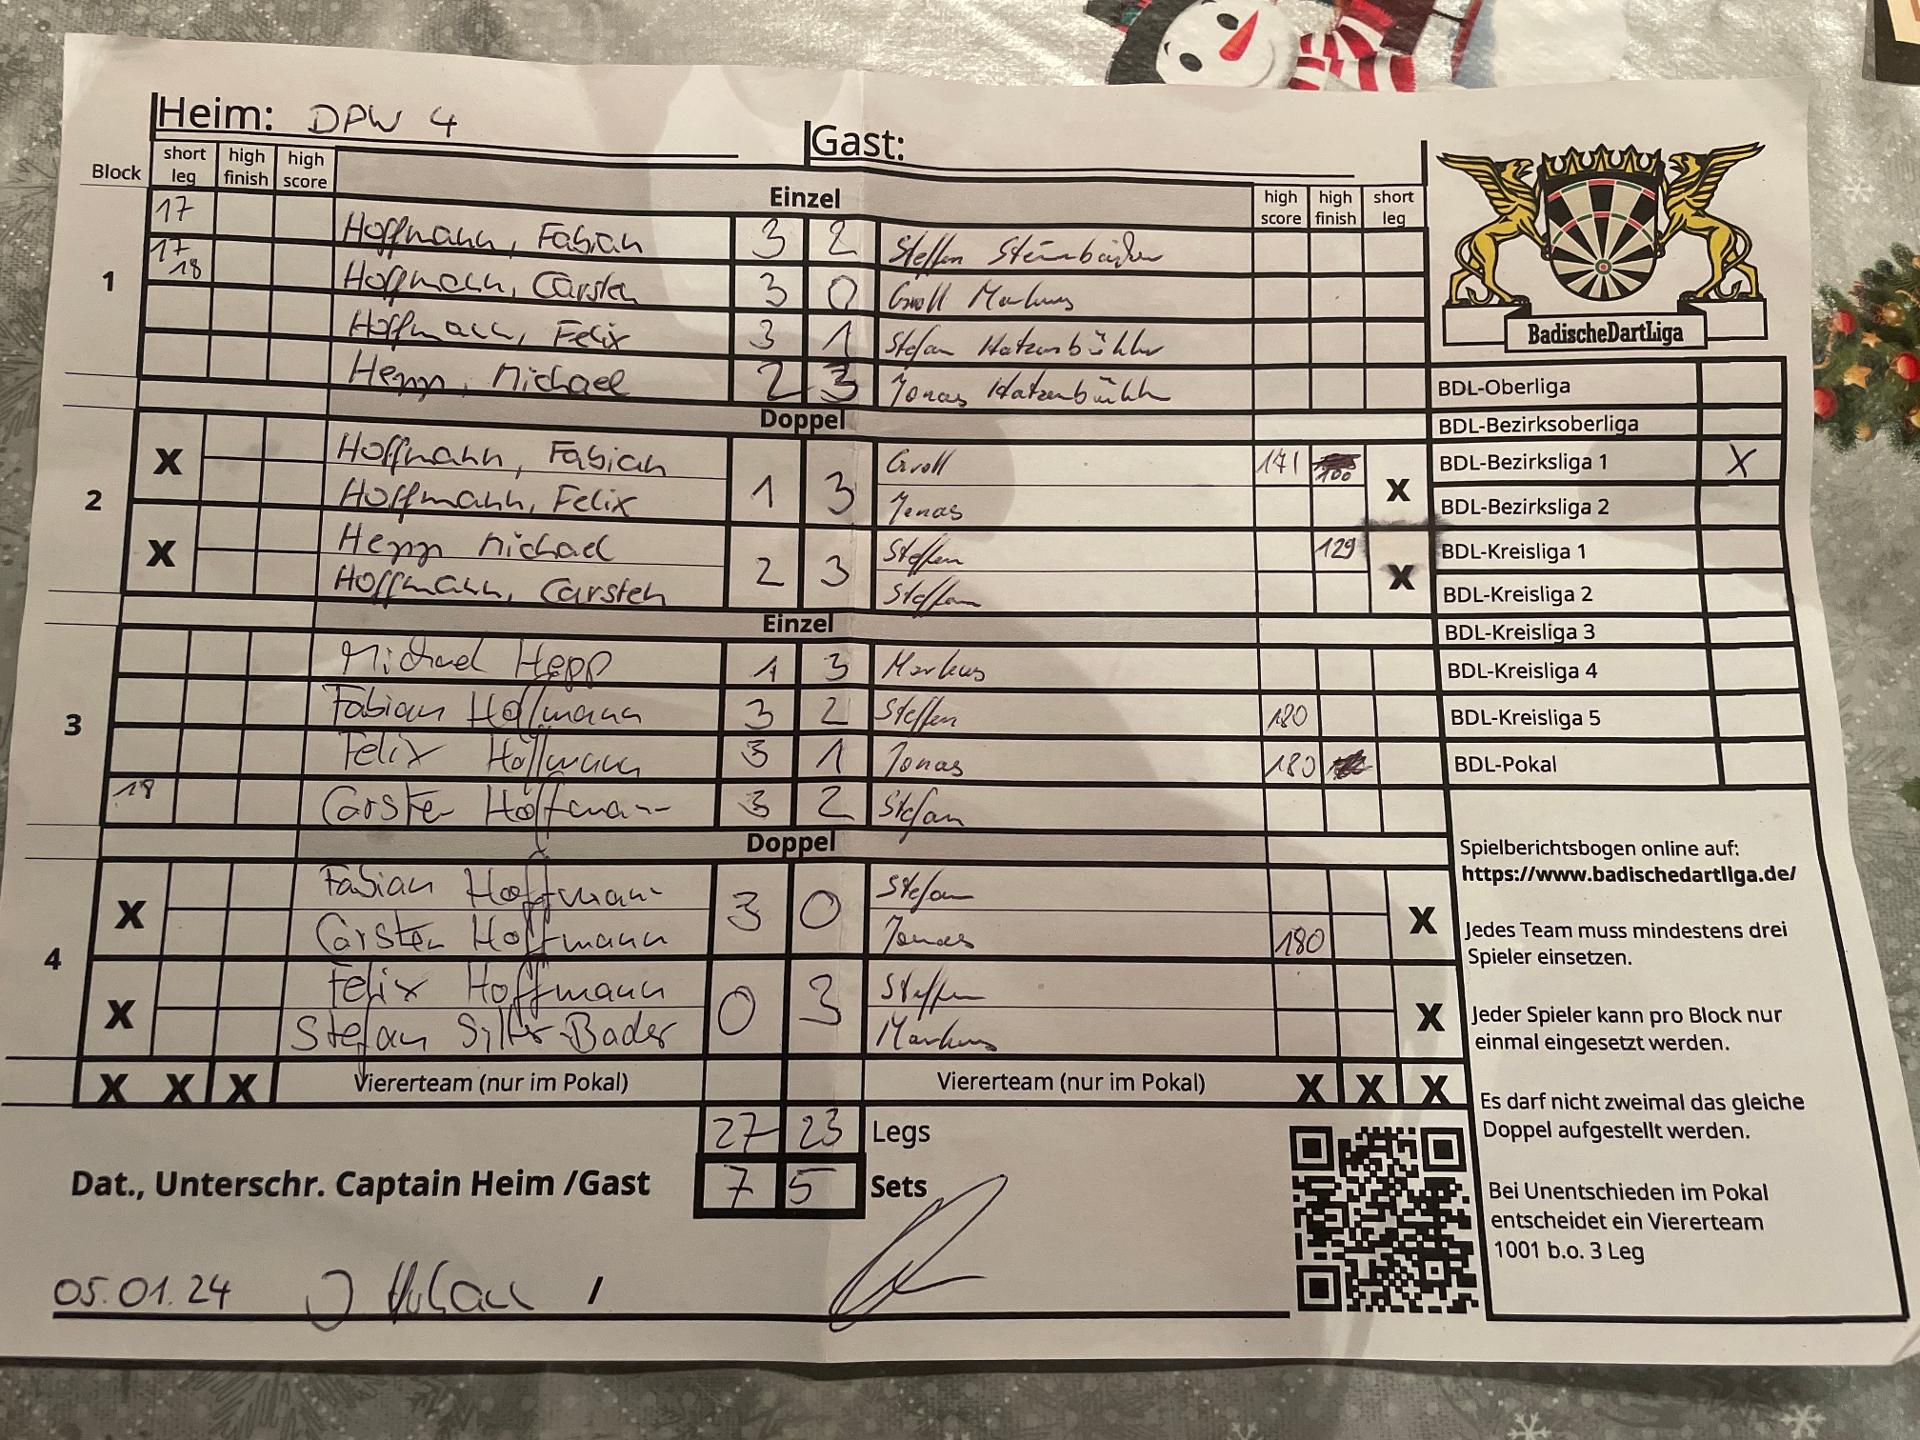 Heim: DPW 4 Gast:
Block short leg high finish high score Einzel high score high finish short leg
1
17 Hoffmann, Fabian 3 2 Steffen
17 18 Hoffmann, Carsten 3 0 Groll Markus
Hoffmann, Felix 3 1 Stefan Hatzenbühler
Hepp, Michael 2 3 Jonas Hatzenbühler
Doppel
2
X Hoffmann, Fabian 1 3 Groll 171 100 X
Hoffmann, Felix Jonas
X Hepp Michael 2 3 Steffen 129 X
Hoffmann, Carsten Steffen
Einzel
3
Michael Hepp 1 3 Markus
Fabian Hoffmann 3 2 Steffen 180
Felix Hoffmann 3 1 Jonas 180
18 Carsten Hoffmann 3 2 Stefan
Doppel
4
X Fabian Hoffmann 3 0 Stefan X
Carsten Hoffmann Jonas 180
X Felix Hoffmann 0 3 Steffen X
Stefan Markus
X X X Viererteam (nur im Pokal) Viererteam (nur im Pokal) X X X
27 23 Legs
Dat., Unterschr. Captain Heim /Gast 7 5 Sets
05.01.24 /
BadischeDartLiga
BDL-Oberliga
BDL-Bezirksoberliga
BDL-Bezirksliga 1 X
BDL-Bezirksliga 2
BDL-Kreisliga 1
BDL-Kreisliga 2
BDL-Kreisliga 3
BDL-Kreisliga 4
BDL-Kreisliga 5
BDL-Pokal
Spielberichtsbogen online auf:
https://www.badischedartliga.de/
Jedes Team muss mindestens drei
Spieler einsetzen.
Jeder Spieler kann pro Block nur
einmal eingesetzt werden.
Es darf nicht zweimal das gleiche
Doppel aufgestellt werden.
Bei Unentschieden im Pokal
entscheidet ein Viererteam
1001 b.o. 3 Leg